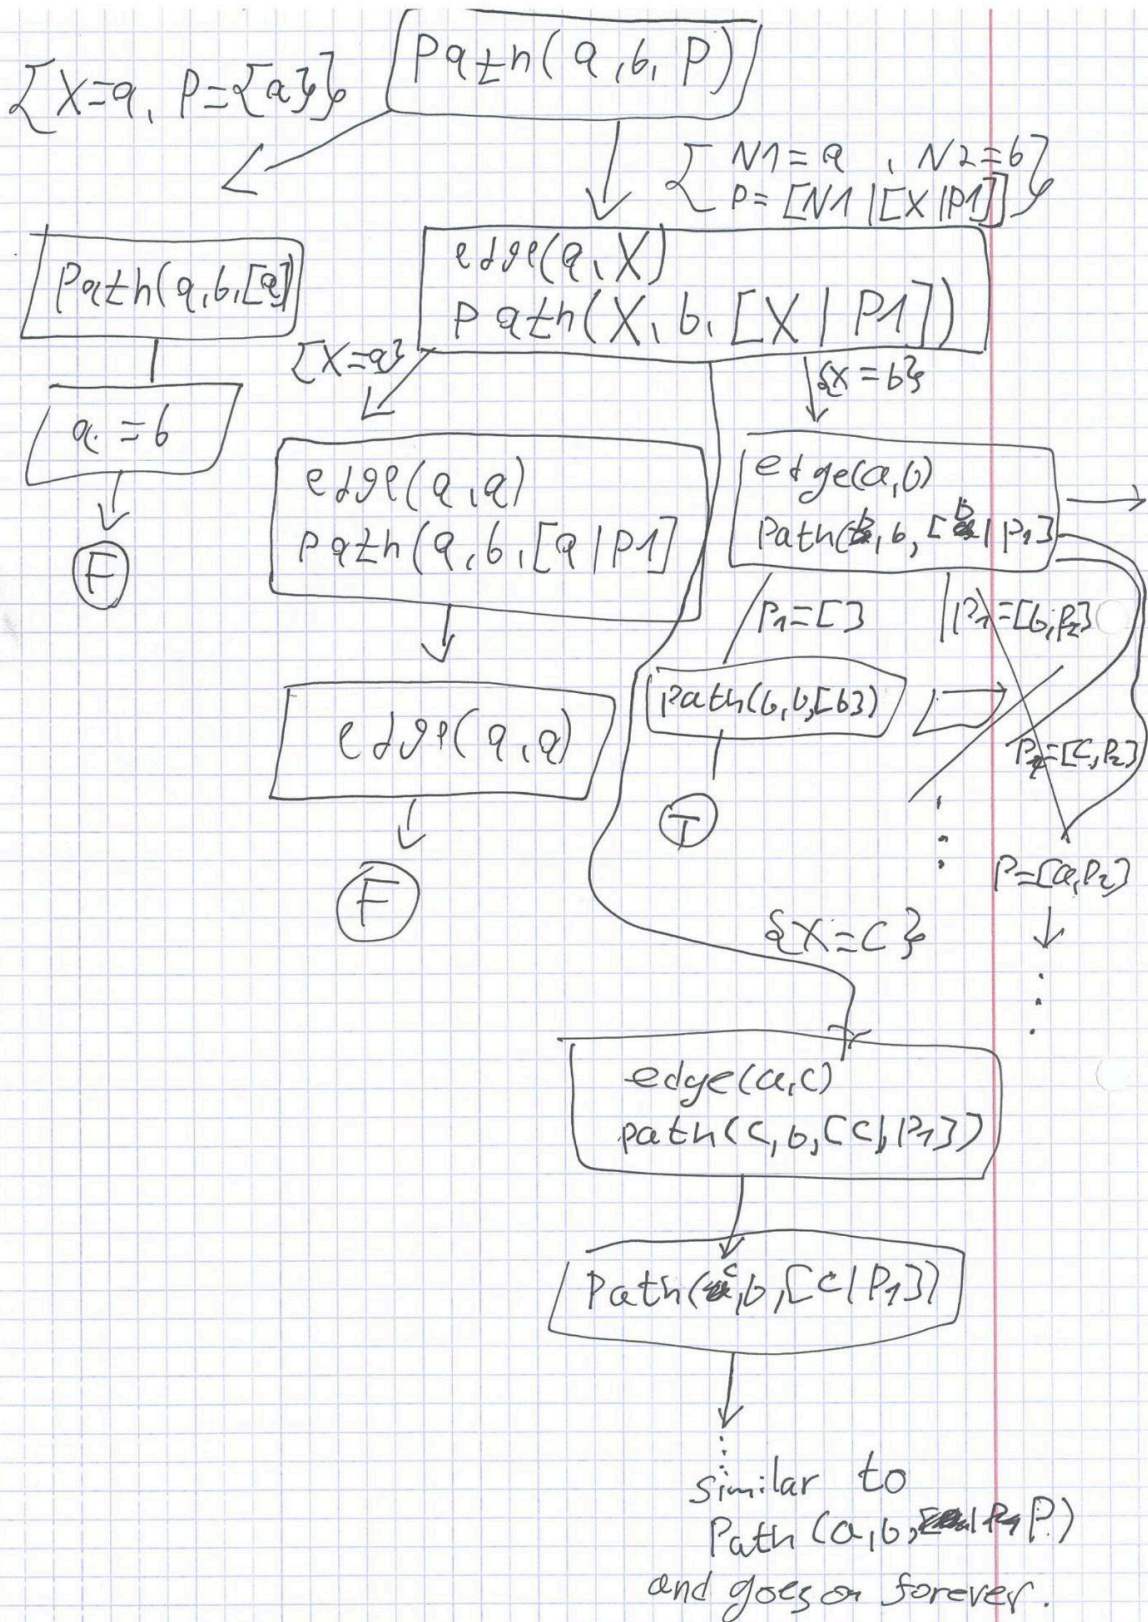 Path(a,b,P)
{X=a, P={a}}
{ N1=a , N2=b }
P=[N1|[X|P1]]
Path(a,b,[a]
edge(a,X)
path(X,b,[X|P1])
{X=a}
{X=b}
a=b
F
edge(a,a)
path(a,b,[a|P1]
edge(a,b)
Path(b,b,[b|P1]
P1=[]
P1=[b,P2]
edge(a,a)
Path(b,b,[b])
P1=[C,P2]
T
F
P=[a,P2]
{X=C}
edge(a,c)
path(c,b,[c|P1])
Path(c,b,[c|P1])
similar to
Path(a,b,P)
and goes on forever.